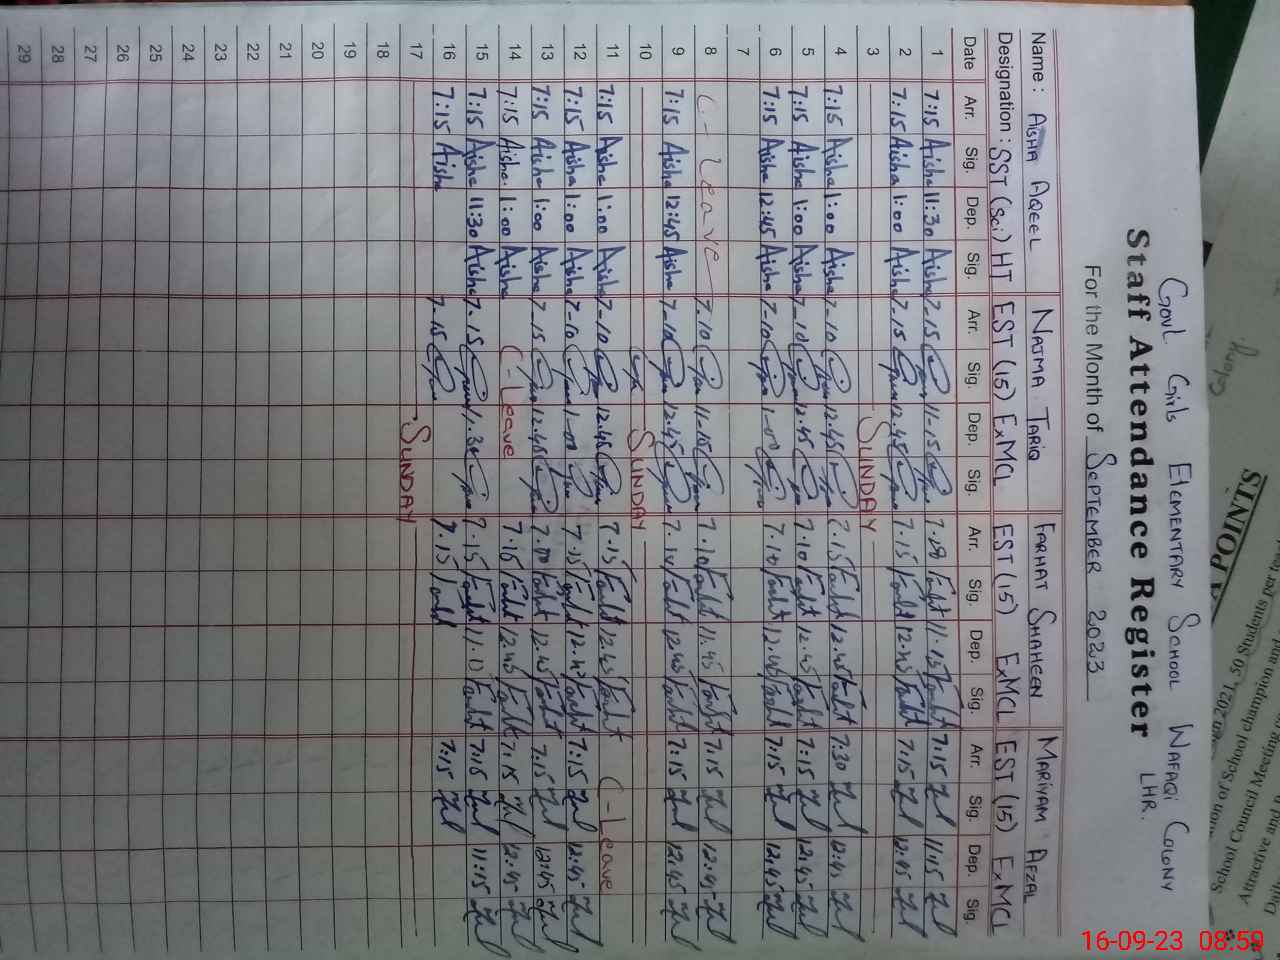 Govt Girls Elementary School Wafaqi Colony
LHR.
Staff Attendance Register
For the Month of September 2023
Name: Aisha Aqeel Najma Tariq Farhat Shaheen Mariyam Afzal
Designation: SST (Sci) HT EST (15) ExMCL EST (15) ExMCL EST (15) ExMCL
Date Arr. Sig. Dep. Sig. Arr. Sig. Dep. Sig. Arr. Sig. Dep. Sig. Arr. Sig. Dep. Sig.
1 7:15 Aisha 11:30 Aisha 7-15 11-15 Farht 11.15 Farht 7:15 11:15
2 7:15 Aisha 1:00 Aisha 7-15 12.45 7.15 Farht 12.45 Farht 7:15 12:45
3 SUNDAY
4 7:15 Aisha 1:00 Aisha 7-10 12.45 7.15 Farht 12.45 Farht 7:30 12:45
5 7:15 Aisha 1:00 Aisha 7-10 12.45 7.10 Farht 12.45 Farht 7:15 12:45
6 7:15 Aisha 12:45 Aisha 7-10 1-00 7.10 Farht 12.45 Farht 7:15 12:45
7
8 C-Leave 7.10 11-15 7.10 Farht 11.45 Farht 7:15 12:45
9 7:15 Aisha 12:45 Aisha 7-10 12.45 7.10 Farht 12.45 Farht 7:15 12:45
10 SUNDAY
11 7:15 Aisha 1:00 Aisha 7-10 12.45 7.15 Farht 12.45 Farht C-Leave
12 7:15 Aisha 1:00 Aisha 7-10 1-00 7.15 Farht 12.45 Farht 7:15 12:45
13 7:15 Aisha 1:00 Aisha 7-15 12.45 Farht 12.45 Farht 7:15 12:45
14 7:15 Aisha 1:00 Aisha C-Leave 7.15 Farht 12.45 Farht 7:15 12:45
15 7:15 Aisha 11:30 Aisha 7.15 11.30 7.15 Farht Farht 7:15 11:15
16 7:15 Aisha 7.15 7.15 Farht 7:15
17 SUNDAY
18
19
20
21
22
23
24
25
26
27
28
29
POINTS
2021, 50 Students per
School champion and
School Council Meeting
Attractive and
Colony
16-09-23 08:59